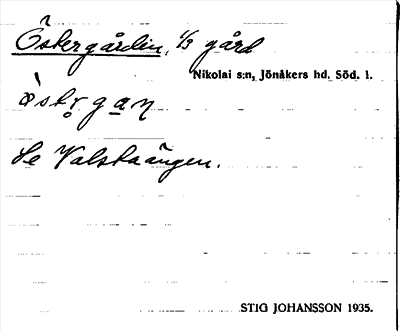 Östergården, 1/3 gård
Nikolai s:n, Jönåkers hd, Söd. l.
ö̀str̥gan
Se Valstaängen.
STIG JOHANSSON 1935.